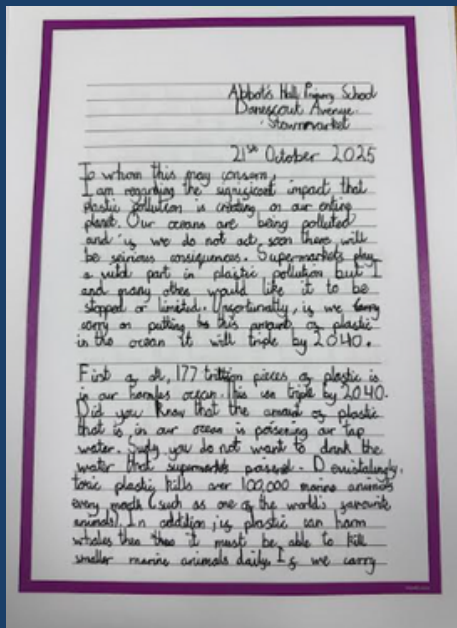 Abbot's Hall Primary School
Danescourt Avenue
Stowmarket
21st October 2025
To whom this may consern,
I am regarding the significant impact that
plastic pollution is creating on our entire
planet. Our oceans are being polluted
and if we do not act soon there will
be seirious consequences. Supermarkets play
a part in plastic pollution but I
and many other would like it to be
stopped or limited. Unfortunatly, if we
carry on putting this amount of plastic
in the ocean it will triple by 2040.
First of all, 177 trillion pieces of plastic is
in our harmless ocean. This will triple by 2040.
Did you know that the amount of plastic
that is in our ocean is poisening our tap
water. Surly you do not want to drink the
water that supermarkets poisned. Devistatingly,
toxic plastic kills over 100,000 marine animals
every month (such as one of the world's favourite
animals). In addition, if plastic can harm
whales then it must be able to kill
smaller marine animals daily. If we carry